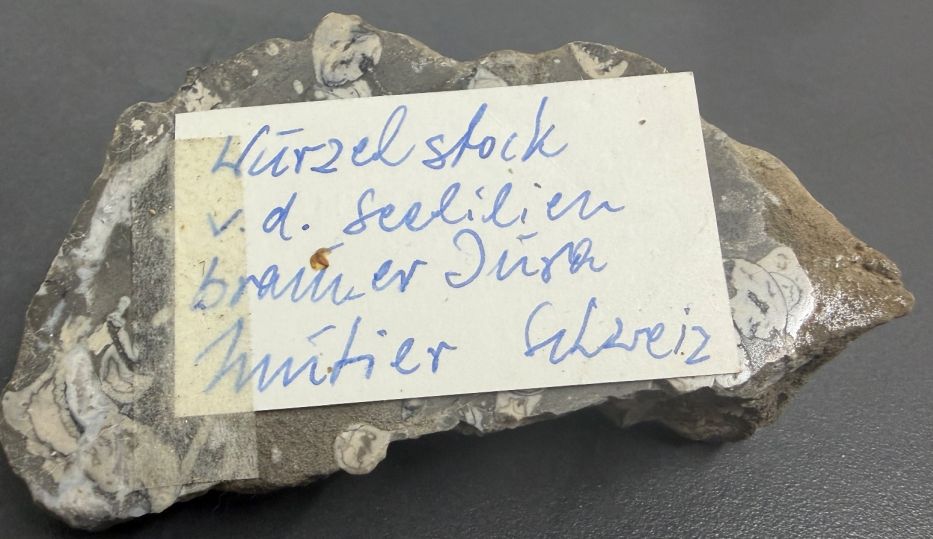 Wurzelstock
v. d. Seelilien
brauner Jura
Mutier Schweiz